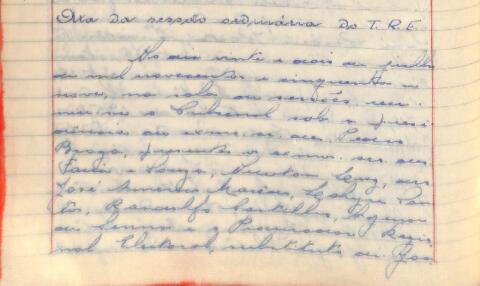 Ata da sessão ordinária do T. R. E.
Aos vinte e dois de julho
de mil novecentos e cinquenta e
nove, na sala de sessões, reu-
niu-se o Tribunal sob a presi-
dência do exmo. sr. des.
Braga, presentes os exmos. srs. des.
Faria e Souza, Newton Luz, drs.
José Américo Macedo,
Randolfo
de Lemos e o Procurador Regio-
nal Eleitoral, substituto